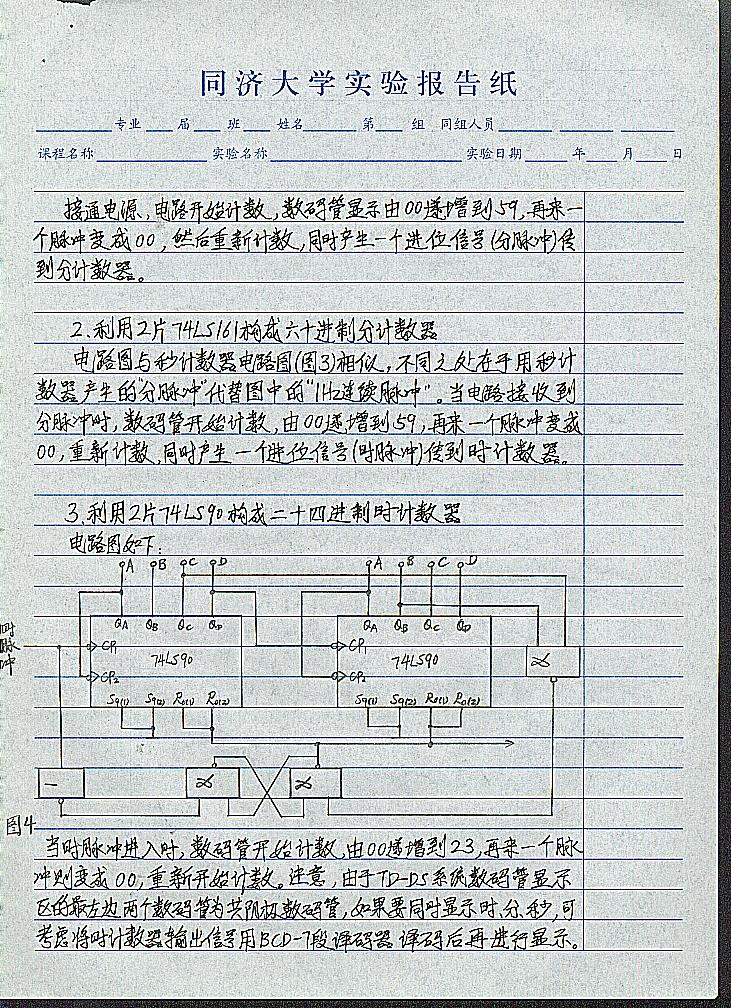 同济大学实验报告纸
专业 届 班 姓名 第 组 同组人员
课程名称 实验名称 实验日期 年 月 日
接通电源，电路开始计数，数码管显示由00递增到59，再来一
个脉冲变成00，然后重新计数，同时产生一个进位信号(分脉冲)传
到分计数器。
2.利用2片74LS161构成六十进制分计数器
电路图与秒计数器电路图(图3)相似，不同之处在于用秒计
数器产生的“分脉冲”代替图中的“1Hz连续脉冲”。当电路接收到
分脉冲时，数码管开始计数，由00递增到59，再来一个脉冲变成
00，重新计数，同时产生一个进位信号(时脉冲)传到时计数器。
3.利用2片74LS90构成二十四进制时计数器
电路图如下：
A B C D A B C D
QA QB QC QD QA QB QC QD
时脉冲
CP1 CP1
74LS90 74LS90 &
CP2 CP2
S9(1) S9(2) R0(1) R0(2) S9(1) S9(2) R0(1) R0(2)
1 & &
图4
当时脉冲进入时，数码管开始计数，由00递增到23，再来一个脉
冲则变成00，重新开始计数。注意，由于TD-DS系统数码管显示
区的最左边两个数码管为共阴极数码管，如果要同时显示时、分、秒，可
考虑将时计数器输出信号用BCD-7段译码器译码后再进行显示。